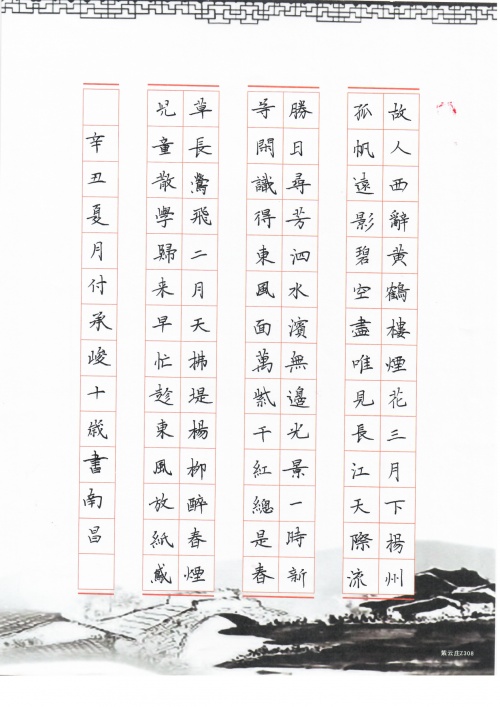 故人西辭黃鶴樓煙花三月下揚州
孤帆遠影碧空盡唯見長江天際流
勝日尋芳泗水濱無邊光景一時新
等閑識得東風面萬紫千紅總是春
草長鶯飛二月天拂堤楊柳醉春煙
兒童散學歸来早忙趁東風放紙鳶
辛丑夏月付承峻十歲書南昌
紫云庄Z308